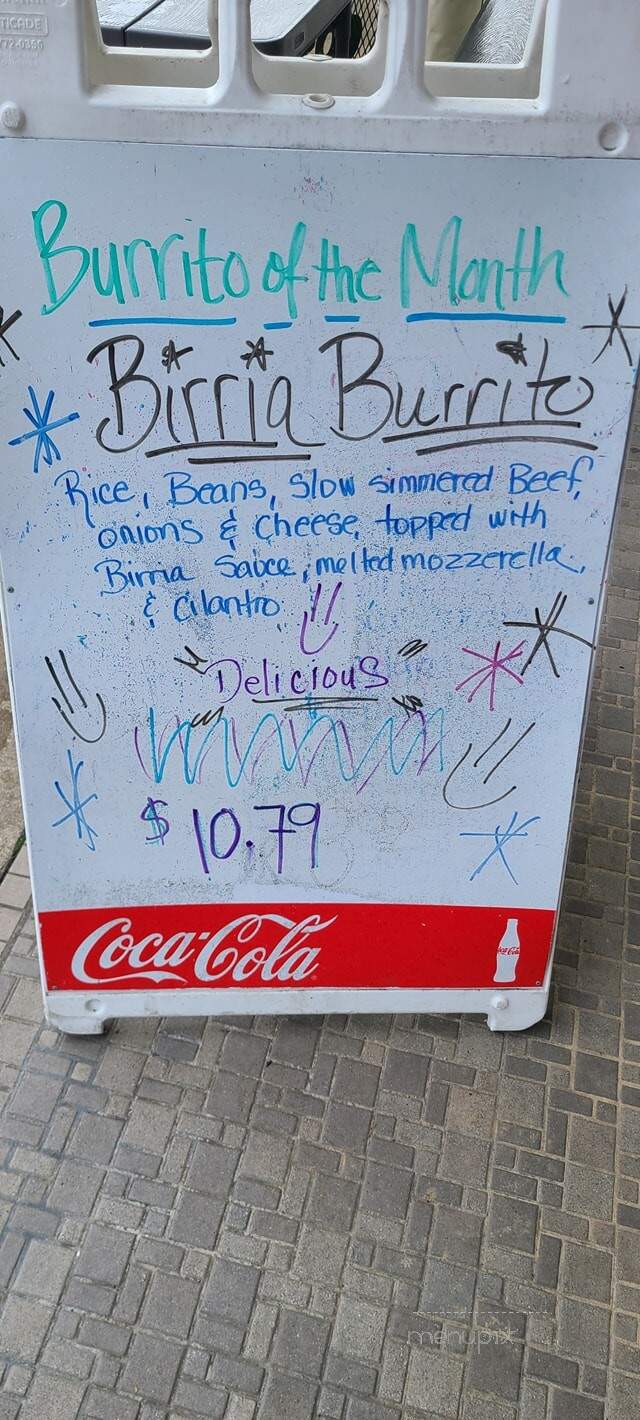 TICADE
Burrito of the Month
Birria Burrito
Rice, Beans, Slow simmered Beef,
onions & Cheese, topped with
Birria Sauce, melted mozzerella,
& Cilantro
Delicious
$10.79
Coca-Cola
Coca-Cola
menupix